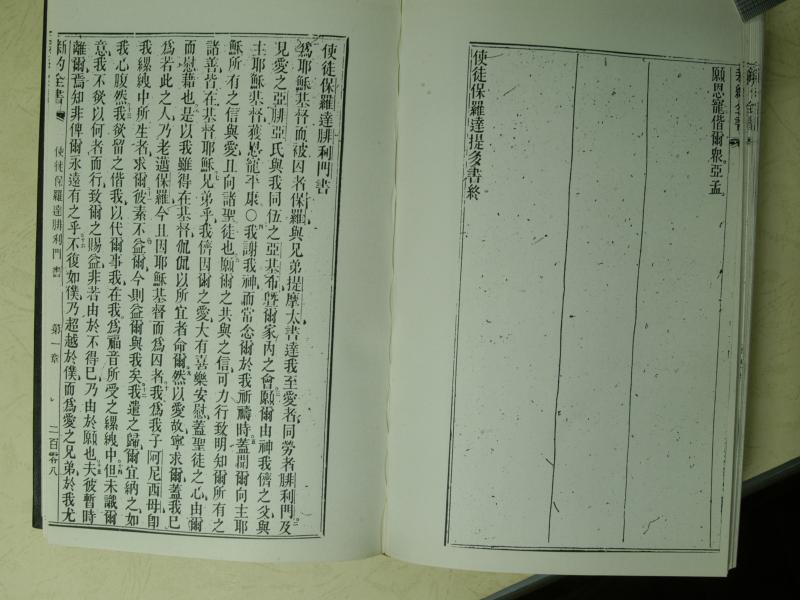 願恩寵偕爾眾亞孟
使徒保羅達提多書終
使徒保羅達腓利門書
爲耶穌基督而被囚者保羅與兄弟提摩太書達我至愛者同勞者腓利門及
見愛之亞腓亞氏與我同伍之亞基布曁爾家內之會願爾由神我儕之父與
主耶穌基督獲恩寵平康〇我謝我神而常念爾於我祈禱時蓋聞爾向主耶
穌所有之信與愛且向諸聖徒也願爾之共與之信可力行致明知爾所有之
諸善皆在基督耶穌兄弟乎我儕因爾之愛大有喜樂安慰蓋聖徒之心由爾
而慰藉也是以我雖得在基督侃侃以所宜者命爾然以愛故寧求爾蓋我已
爲若此之人乃老邁保羅今且因耶穌基督而爲囚者我爲我子阿尼西母卽
我縲絏中所生者求爾彼素不益爾今則益爾與我矣我遣之歸爾宜納之如
我心腹然我欲留之偕我以代爾事我在我爲福音所受之縲絏中但未識爾
意我不欲以何者而行致爾之賜益非若由於不得已乃由於願也夫彼暫時
離爾焉知非俾爾永遠有之乎不復如僕乃超越於僕而爲愛之兄弟於我尤
新約全書
使徒保羅達腓利門書
第一章
二百零八